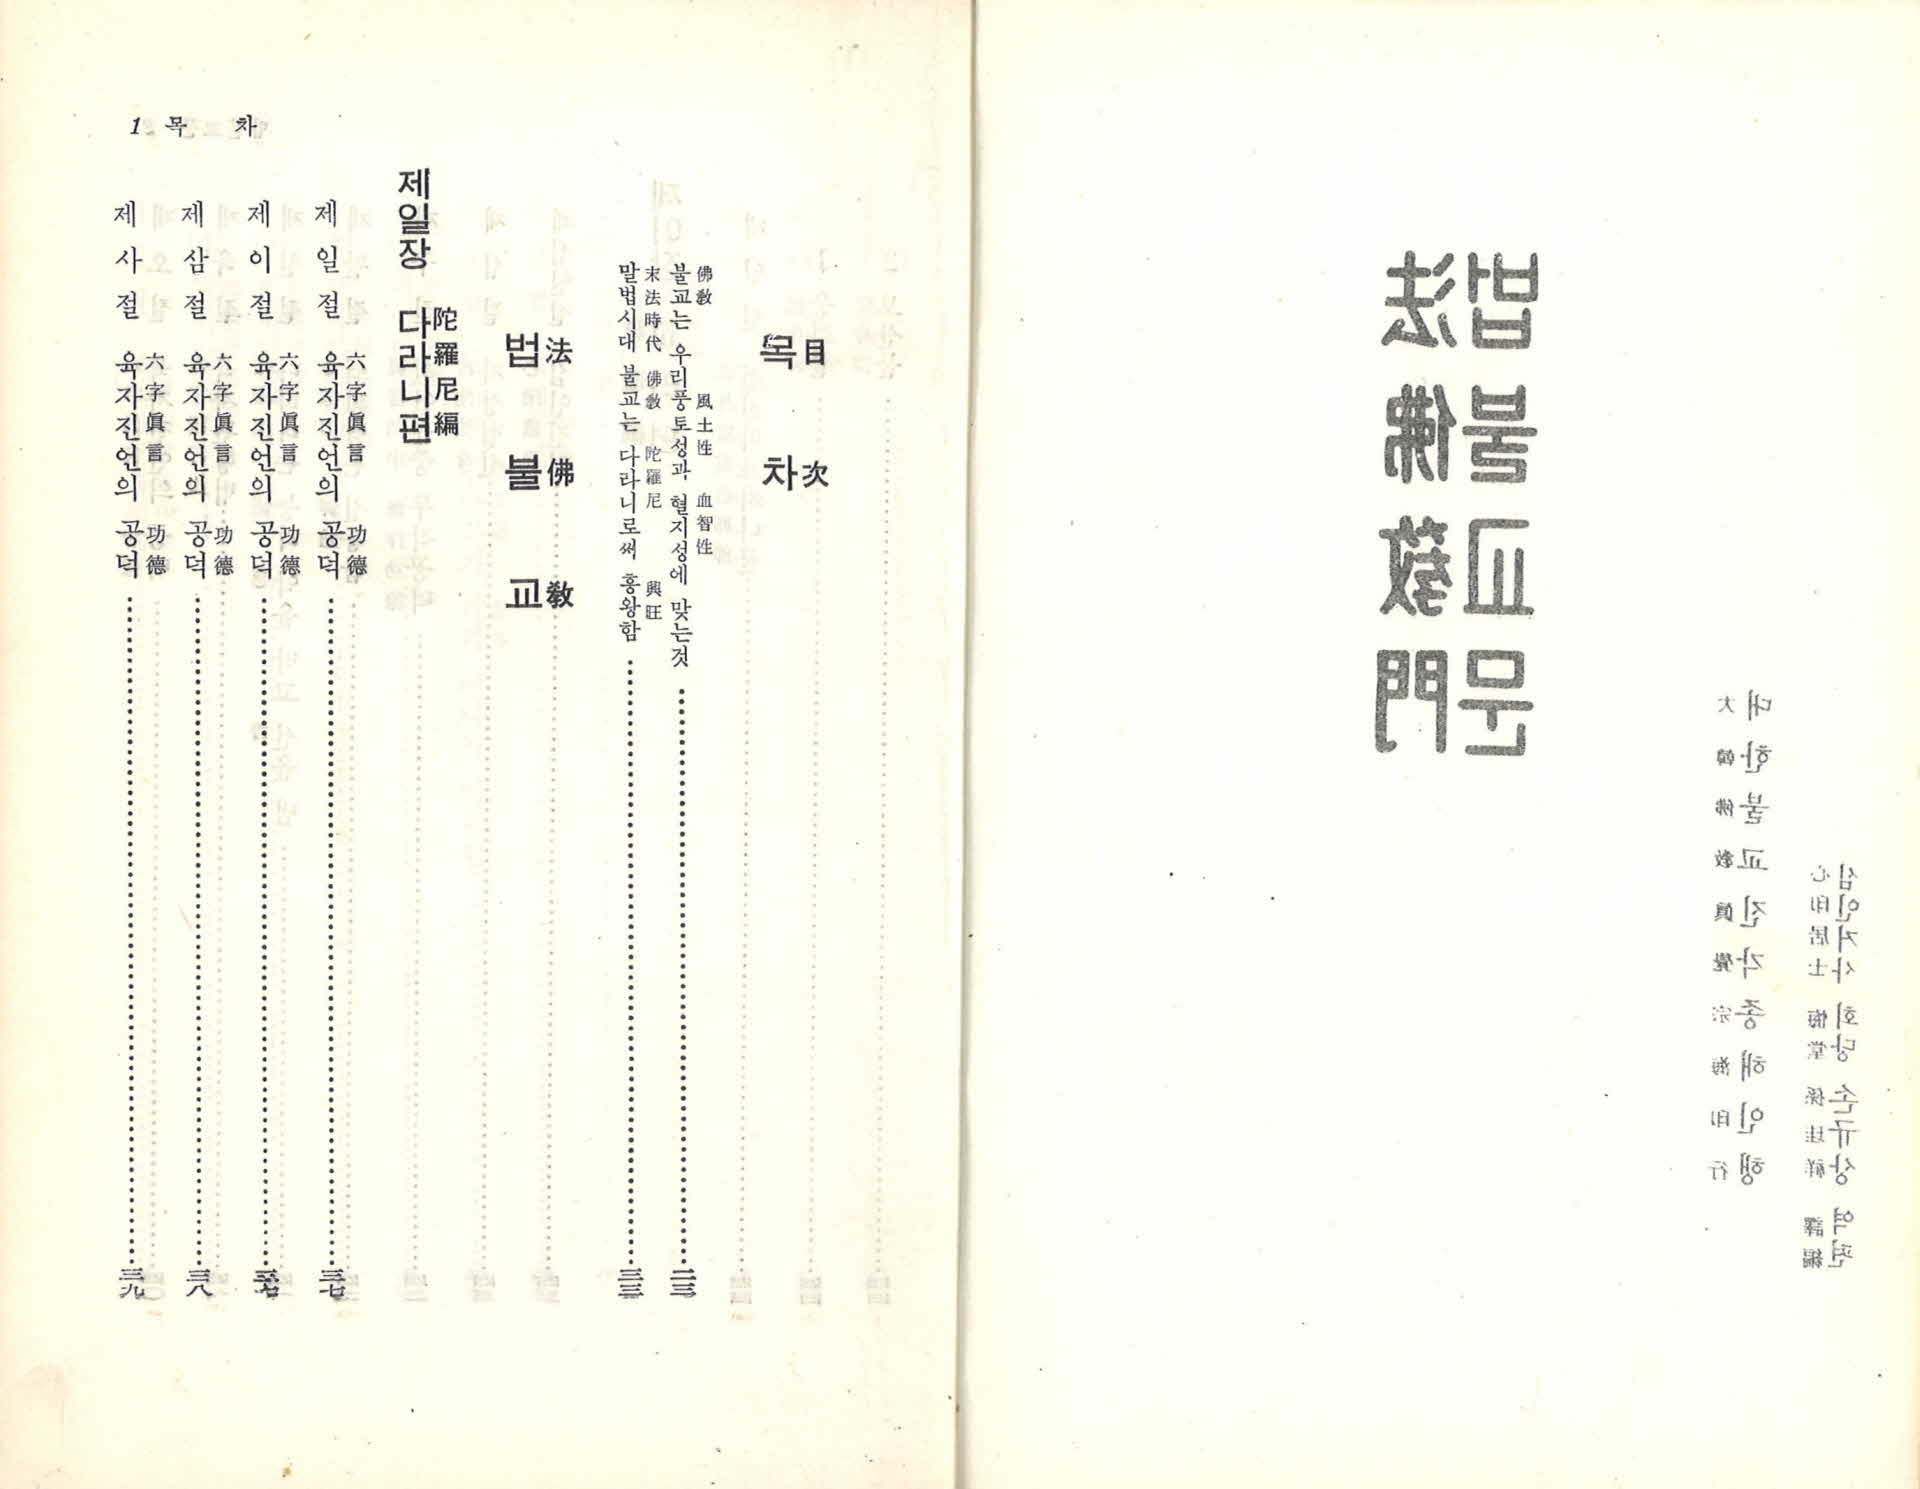 심인거사 회당 손규상 역편
心印居士 悔堂 孫珪祥 譯編
대한불교진각종해인행
大韓佛敎眞覺宗海印行
법불교문
法佛敎門
目次
목차
佛敎 風土性 血智性
불교는 우리풍토성과 혈지성에 맞는것 …… 二三
末法時代 佛敎 陀羅尼 興旺
말법시대 불교는 다라니로써 흥왕함 …… 三三
法佛敎
법불교
陀羅尼編
제일장 다라니편
六字眞言 功德
제일절 육자진언의 공덕 …… 三七
六字眞言 功德
제이절 육자진언의 공덕 …… 三七
六字眞言 功德
제삼절 육자진언의 공덕 …… 三八
六字眞言 功德
제사절 육자진언의 공덕 …… 三九
1 목 차